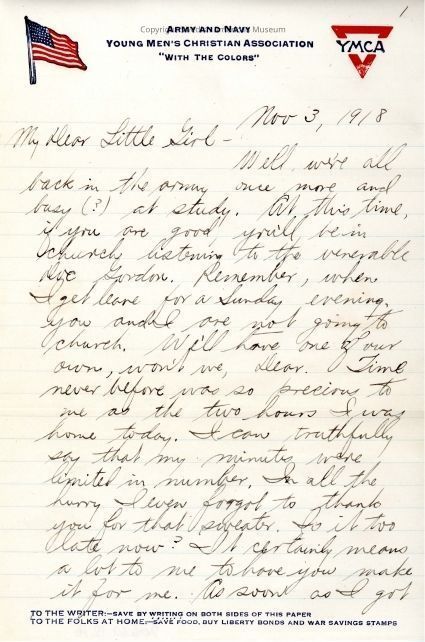 1
Army and Navy
Young Men's Christian Association
"With the Colors"
YMCA
Nov 3, 1918
My Dear Little Girl -
Well we're all
back in the army once more and
busy (?) at study. At this time,
if you are good you'll be in
church listening to the venerable
Doc Gordon. Remember, when
I get leave for a Sunday evening,
you and I are not going to
church. We'll have one of our
own, won't we, Dear. Time
never before was so precious to
me as the two hours I was
home today. I can truthfully
say that my minutes were
limited in number. In all the
hurry I even forgot to thank
you for that sweater. Is it too
late now? It certainly means
a lot to me to have you make
it for me. As soon as I got
TO THE WRITER:—SAVE BY WRITING ON BOTH SIDES OF THIS PAPER
TO THE FOLKS AT HOME:—SAVE FOOD, BUY LIBERTY BONDS AND WAR SAVINGS STAMPS